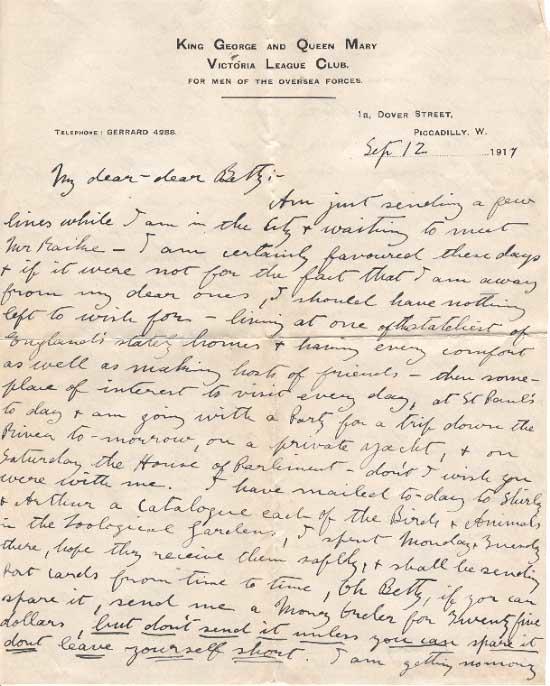 KING GEORGE AND QUEEN MARY
VICTORIA LEAGUE CLUB.
FOR MEN OF THE OVERSEA FORCES.
1a, DOVER STREET,
TELEPHONE: GERRARD 4288. PICCADILLY, W.
Sep 12 1917
My dear-dear Betty:-
Am just sending a few
lines while I am in the City & waiting to meet
Mr - I am certainly favoured these days
& if it were not for the fact that I am away
from my dear ones, I should have nothing
left to wish for - living at one of the stateliest of
England's stately homes & having every comfort
as well as making hosts of friends - then some-
place of interest to visit every day, at St Paul's
to day & am going with a Party for a trip down the
River to-morrow, on a private yacht, & on
Saturday the House of Parliment - don't I wish you
were with me. I have mailed to-day to Shirly
& Arthur a Catalogue each of the Birds & Animals
in the Zoological Gardens, I spent Monday & Tuesday
there, hope they receive them saftly, & shall be sending
Post cards from time to time, Oh Betty, if you can
spare it, send me a Money Order for Twenty five
dollars, but don't send it unless you can spare it
dont leave yourself short. I am getting no money